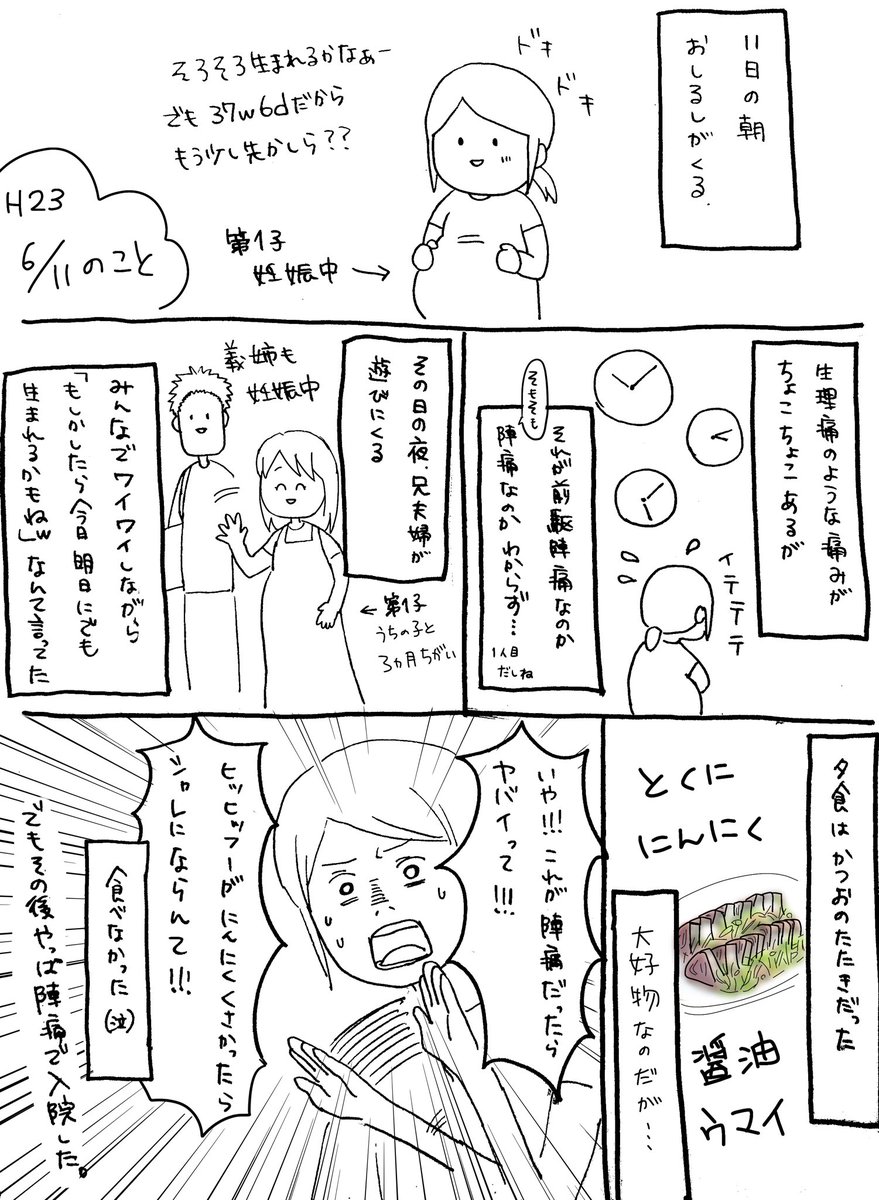 11日の朝
おしるしがくる.
ドキ
ドキ
そろそろ生まれるかなぁー
でも37w6dだから
もう少し先かしら??
H23
6/11のこと
第1子
妊娠中→
生理痛のような痛みが
ちょこちょこあるが
イテテテ
そもそも
それが前駆陣痛なのか
陣痛なのかわからず…
1人目
だしね
その日の夜、兄夫婦が
遊びにくる
義姉も
妊娠中
←第1子
うちの子と
3ヵ月ちがい
みんなでワイワイしながら
「もしかしたら今日明日にでも
生まれるかもねw」なんて言ってた
夕食はかつおのたたきだった
とくに
にんにく
醤油
ウマイ
大好物なのだが…
いや!!!これが陣痛だったら
ヤバイって!!!
ヒッヒッフーがにんにくくさかったら
シャレにならんて!!!
食べなかった(泣)
でもその後やっぱ陣痛で入院した。